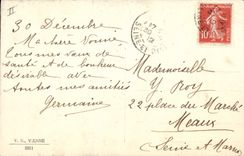 II
30 Décembre
Ma chère Yvonne
Tous mes vœux de
santé et de bonheur
désirable avec
toutes mes amitiés
Germaine
Mademoiselle
Y Roy
22 place du Marché
Meaux
Seine et Marne
10
V. L. VIENNE